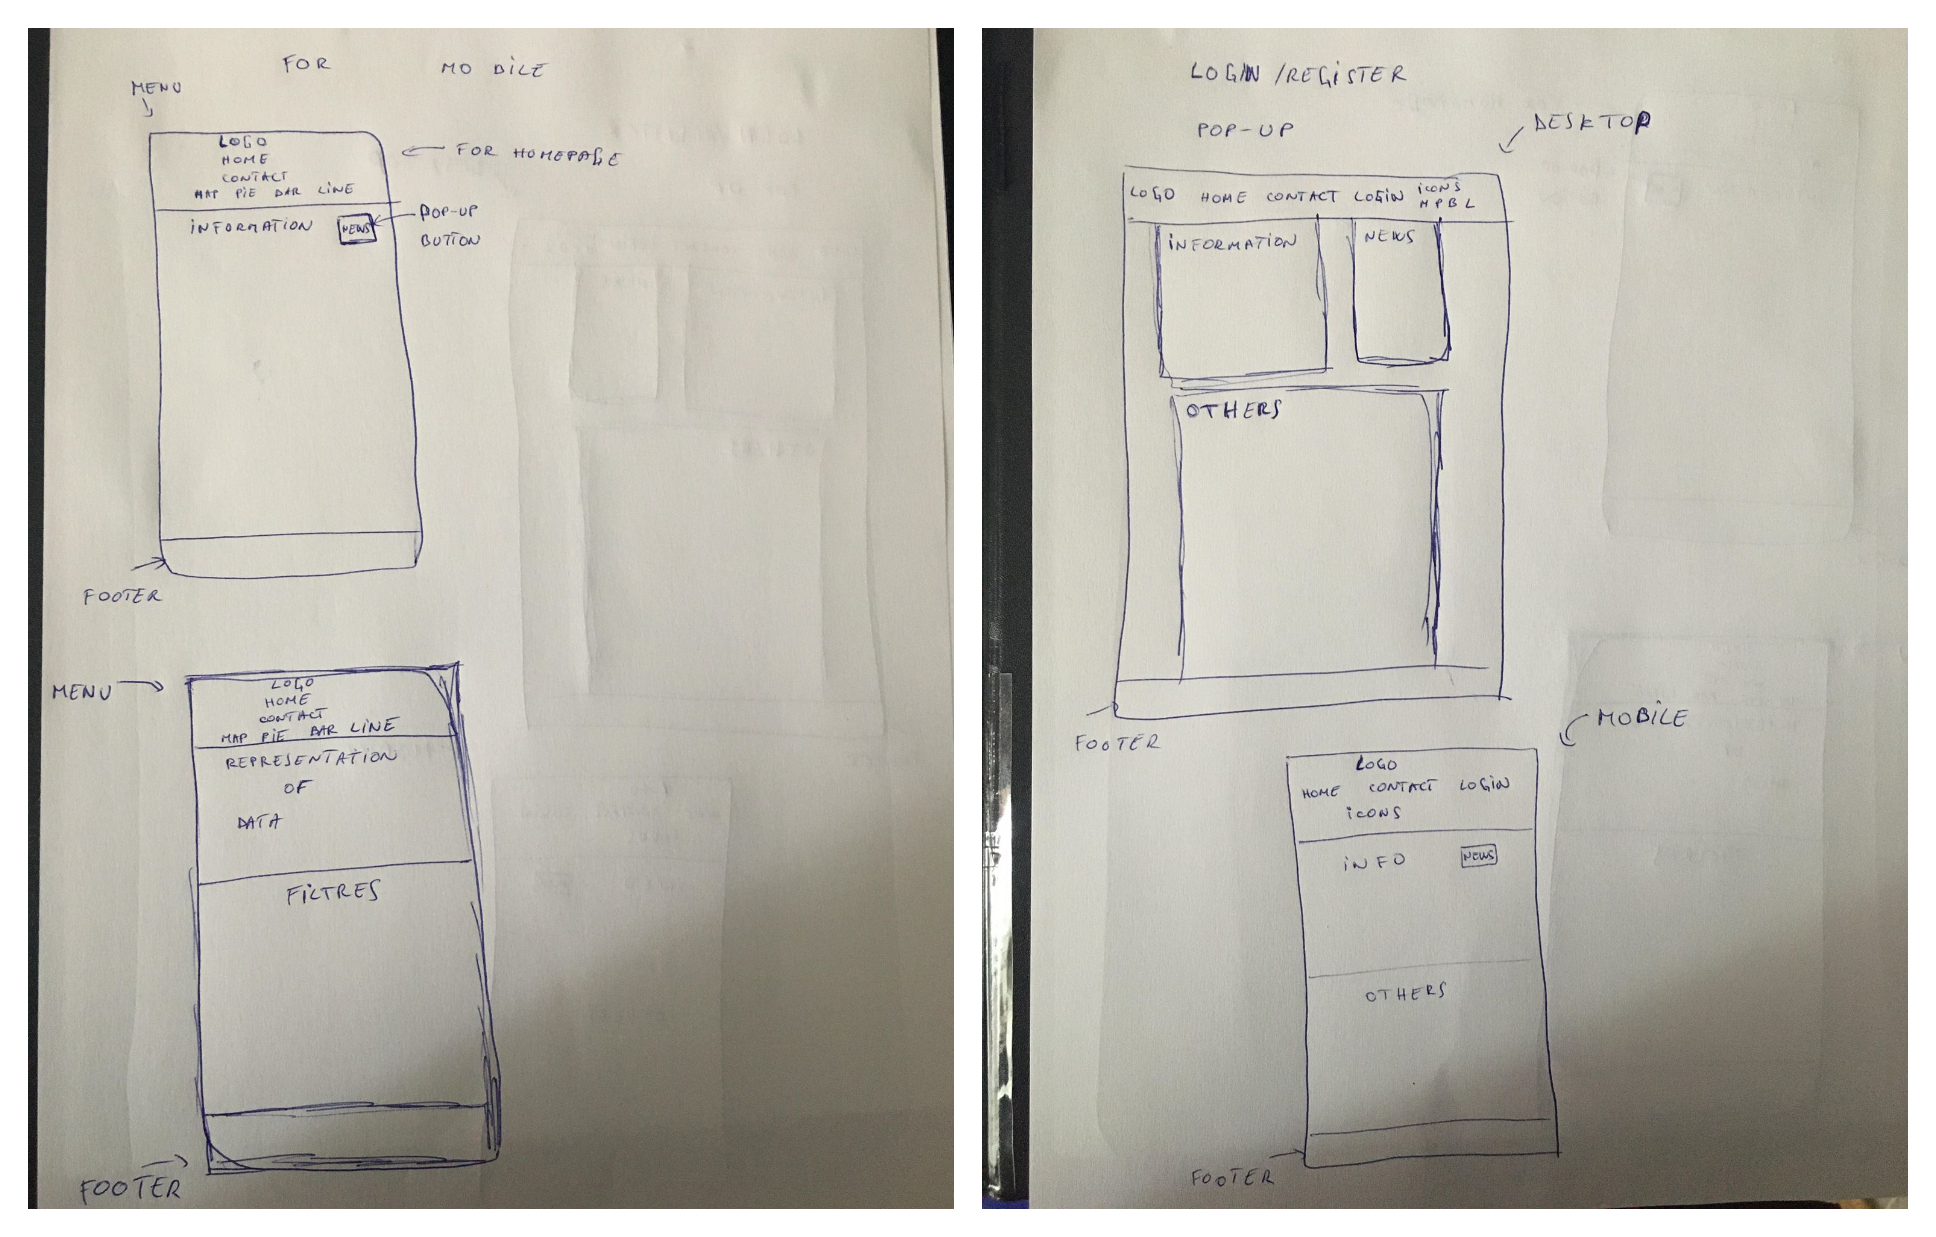 FOR MOBILE
MENU
LOGO
HOME
CONTACT
MAP PIE BAR LINE
FOR HOMEPAGE
INFORMATION NEWS
POP-UP
BUTTON
FOOTER
MENU
LOGO
HOME
CONTACT
MAP PIE BAR LINE
REPRESENTATION
OF
DATA
FILTRES
FOOTER
LOGIN/REGISTER
POP-UP
DESKTOP
LOGO HOME CONTACT LOGIN ICONS
MPBL
INFORMATION NEWS
OTHERS
FOOTER
MOBILE
LOGO
HOME CONTACT LOGIN
ICONS
INFO NEWS
OTHERS
FOOTER